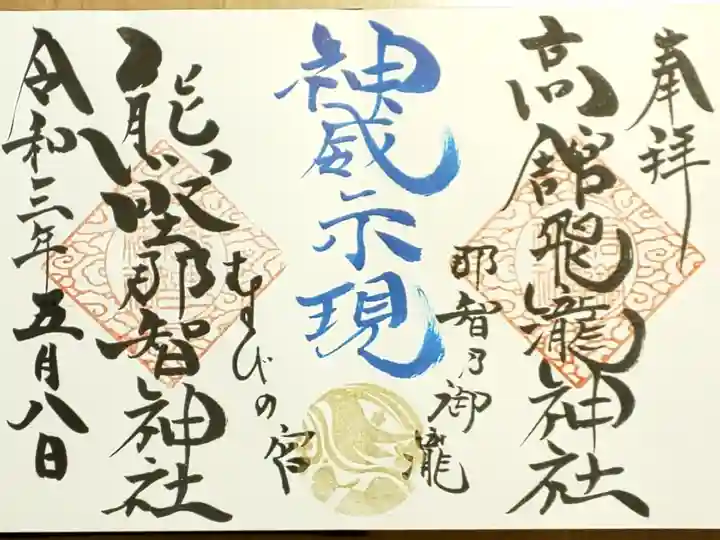 奉拝
高舘飛瀧神社
那智乃御瀧
神威示現
むすびの宮
熊野那智神社
令和三年五月八日